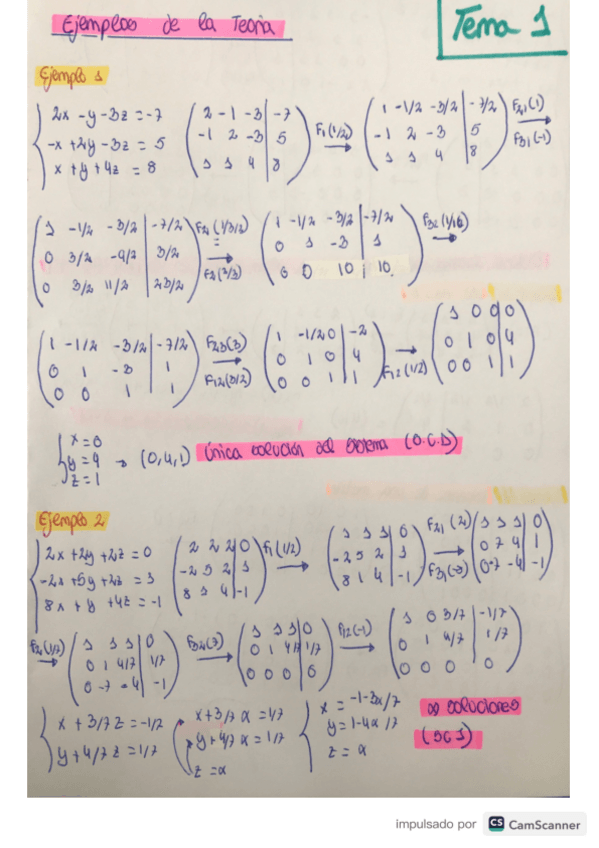 Ejemplos de la Teoría
Tema 1
Ejemplo 1
2x -y -3z = -7
-x +2y -3z = 5
x + y + 4z = 8
2 -1 -3 | -7
-1 2 -3 | 5
1 1 4 | 8
F1(1/2)
1 -1/2 -3/2 | -7/2
-1 2 -3 | 5
1 1 4 | 8
F21(1)
F31(-1)
1 -1/2 -3/2 | -7/2
0 3/2 -9/2 | 3/2
0 3/2 11/2 | 23/2
F2(2/3)
1 -1/2 -3/2 | -7/2
0 1 -3 | 1
0 0 10 | 10
1 -1/2 -3/2 | -7/2
0 1 -3 | 1
0 0 1 | 1
F23(3)
F12(3/2)
1 -1/2 0 | -2
0 1 0 | 4
0 0 1 | 1
F12(1/2)
1 0 0 | 0
0 1 0 | 4
0 0 1 | 1
x = 0
y = 4
z = 1
→ (0,4,1) única solución del sistema (S.C.D)
Ejemplo 2
2x +2y +2z = 0
-2x +5y +2z = 1
8x + y +4z = -1
2 2 2 | 0
-2 5 2 | 1
8 1 4 | -1
F1(1/2)
1 1 1 | 0
-2 5 2 | 1
8 1 4 | -1
F21(2)
1 1 1 | 0
0 7 4 | 1
0 -7 -4 | -1
F2(1/7)
1 1 1 | 0
0 1 4/7 | 1/7
0 -7 -4 | -1
F32(7)
1 1 1 | 0
0 1 4/7 | 1/7
0 0 0 | 0
F12(-1)
1 0 3/7 | -1/7
0 1 4/7 | 1/7
0 0 0 | 0
x + 3/7 z = -1/7
y + 4/7 z = 1/7
x + 3/7 α = 1/7
y + 4/7 α = 1/7
z = α
x = -1-3α/7
y = 1-4α/7
z = α
∞ soluciones
(SCI)
impulsado por CS CamScanner